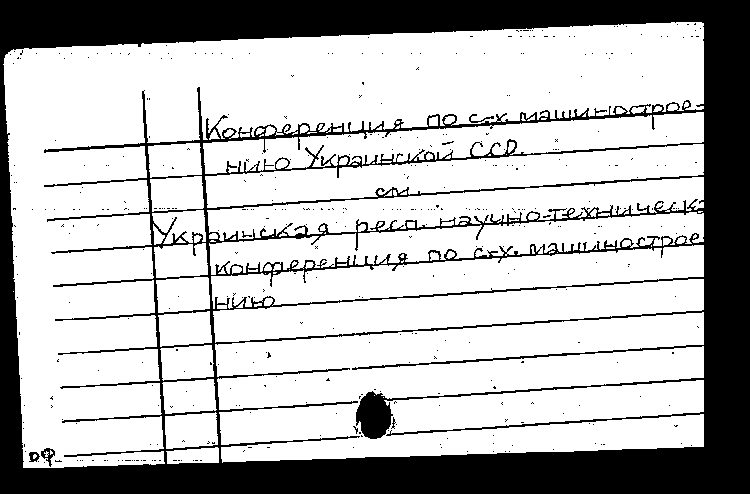 Конференция по с-х. машинострое-
нию Украинской ССР.
см.
Украинская респ. научно-техническа
конференция по с-х. машинострое
нию
ДФ